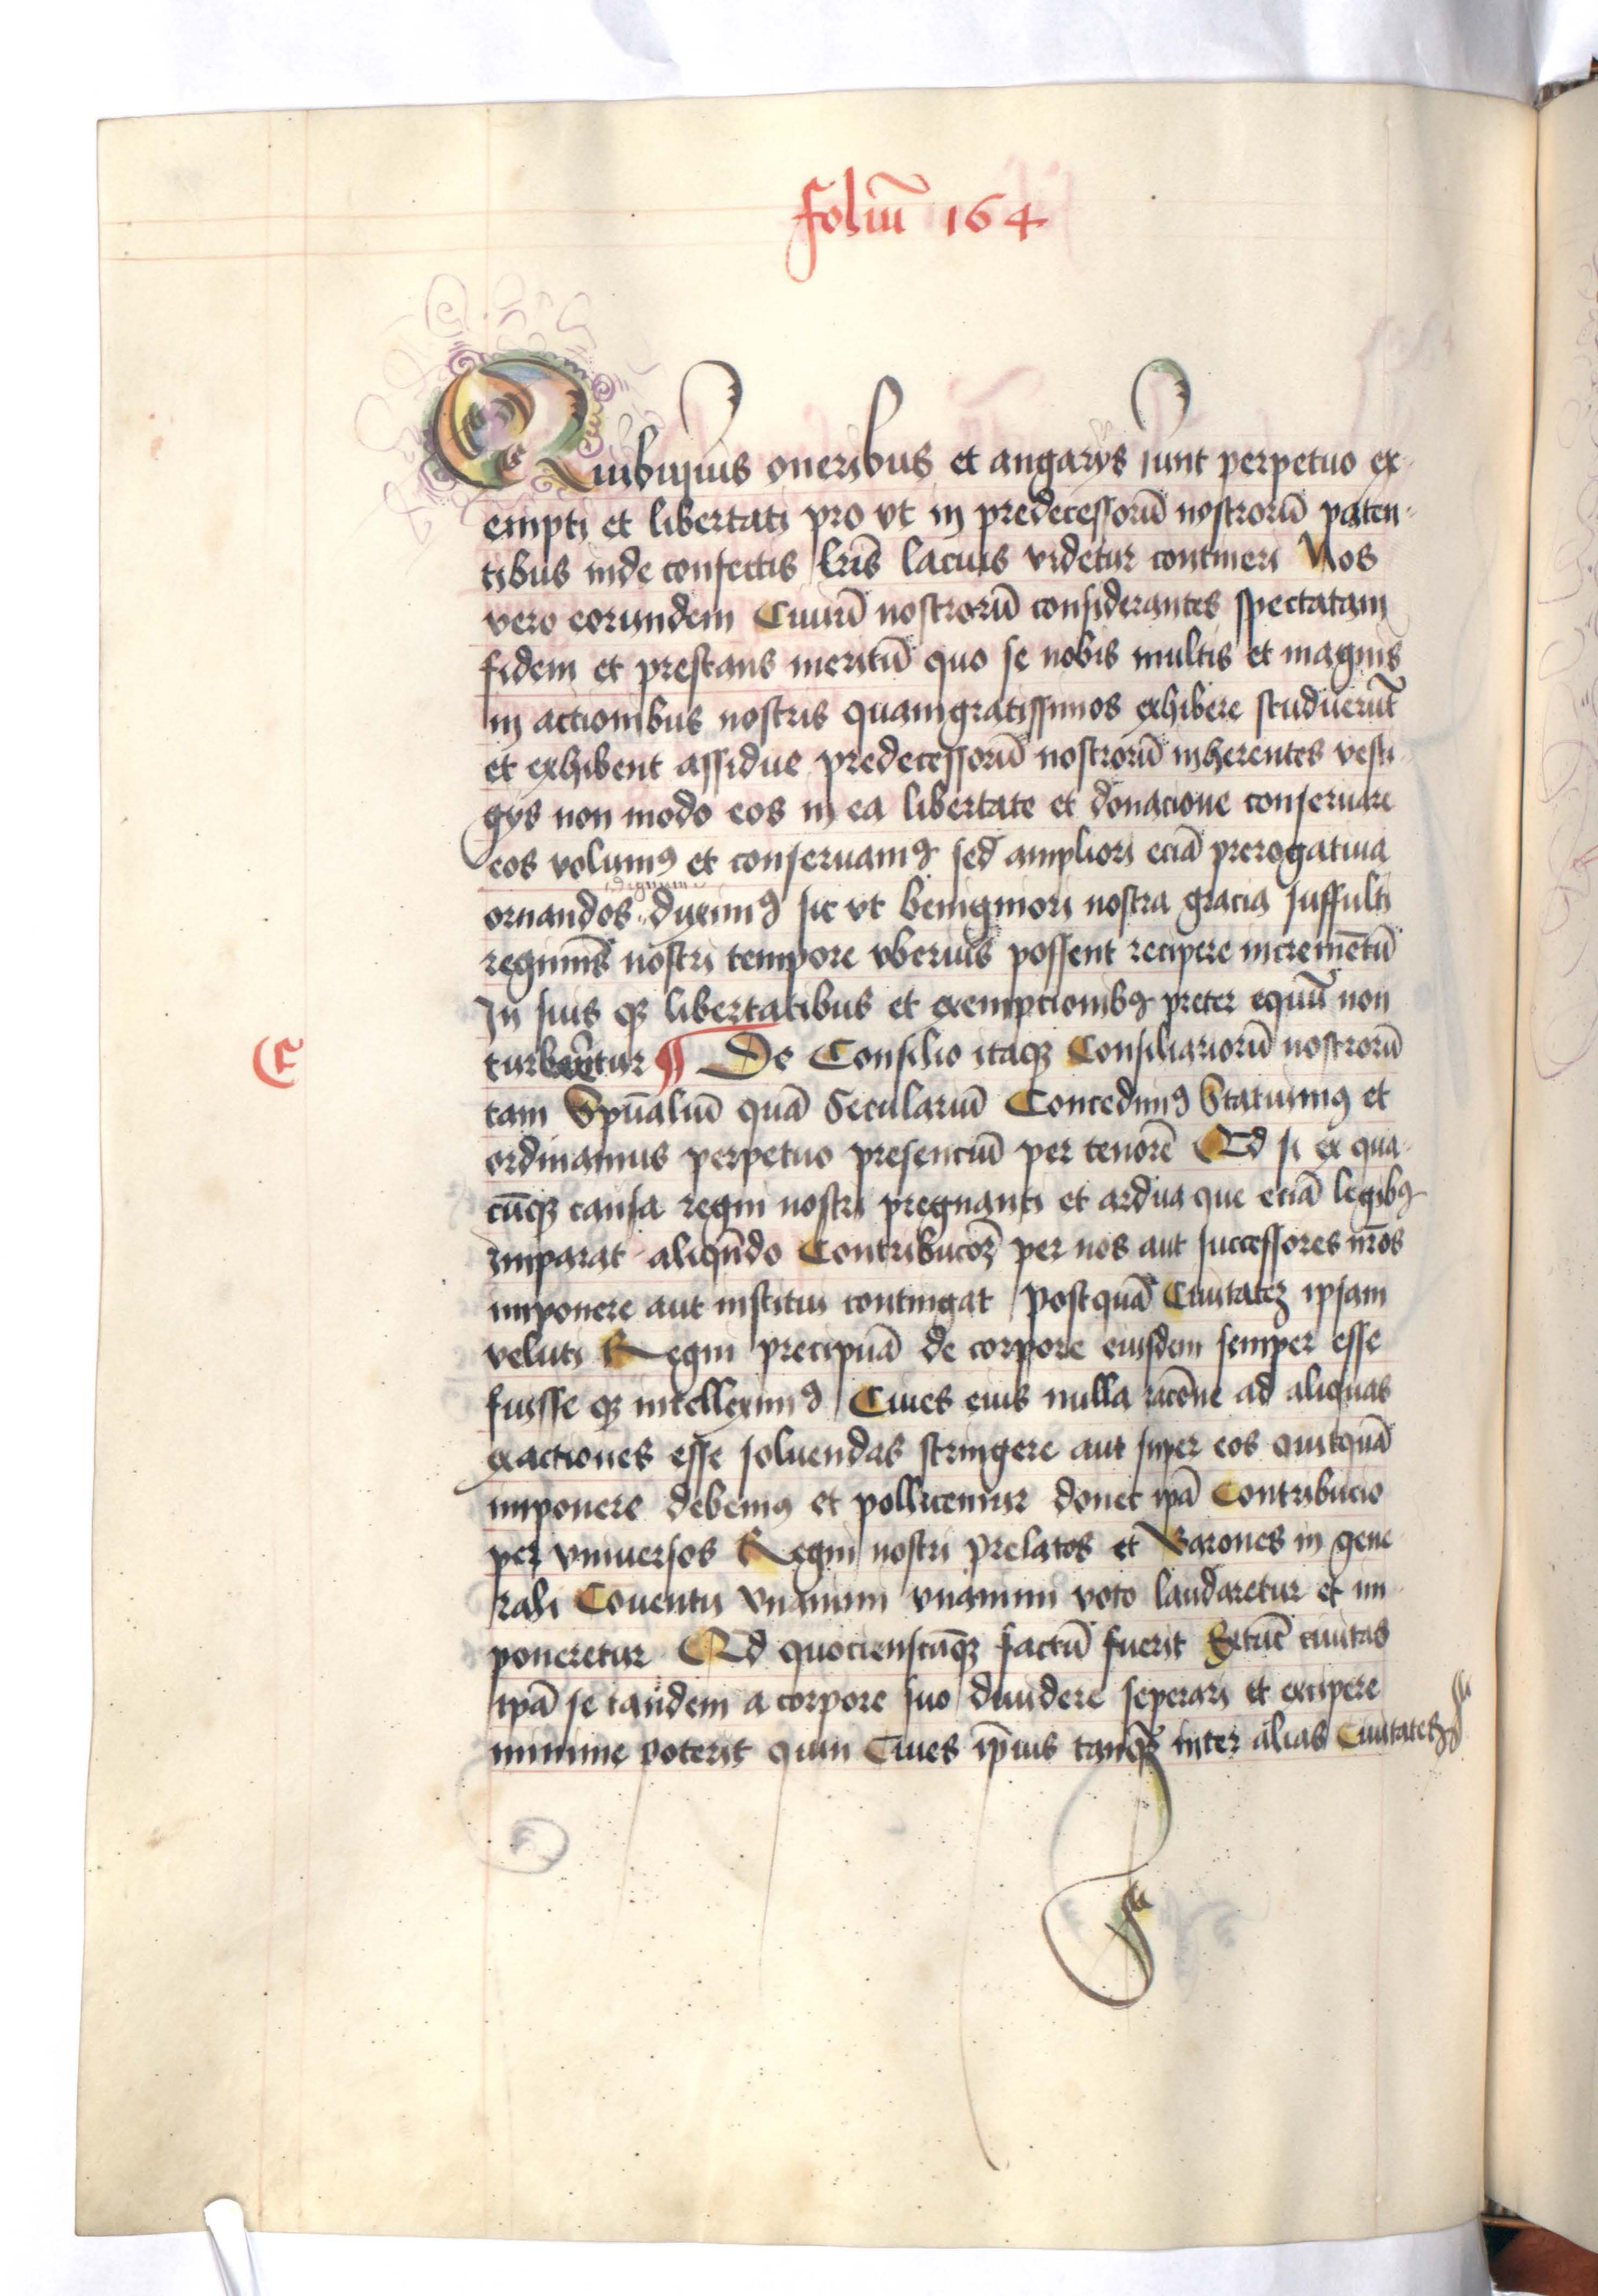 foliu᷑ 164
Quibusuis oneribus et angarÿs sunt perpetuo ex-
empti et libertati pro vt in predecessorū nostrorū paten-
tibus inde confectis lr̄is lacius videtur contineri Nos
vero eorundem Ciuiū nostrorū considerantes spectatam
fidem et prestans meritū quo se nobis multis et magnis
in actionibus nostris quamgratissimos exhibere studuerūt
et exhibent assidue predecessorū nostrorū inherentes vesti-
gÿs non modo eos in ea libertate et donacione conseruare
eos volumꝰ et conseruamꝰ sed ampliori eciā prerogatiua
ornandos dignum duximꝰ sic vt benigniori nostra gracia suffulti
regiminis nostri tempore vberius possent recipere incremētū
In suis qꝫ libertatibus et exempcionibꝰ preter equū non
C turbentur ¶ De Consilio itaqꝫ Consiliariorū nostrorū
tam Spūaliū quā Seculariū Concedimꝰ Statuimꝰ et
ordinamus perpetuo presenciū per tenorē Qd si ex qua-
cūqꝫ causa regni nostri pregnanti et ardua que eciā legibꝰ
imparat aliqn̄do Contribucōꝫ per nos aut successores nr̄os
imponere aut institui contingat postquā Ciuitateꝫ ipsam
veluti Regni precipuā de corpore eiusdem semper esse
fuisse qꝫ intelleximꝰ Ciues eius nulla racōne ad aliquas
exactiones esse soluendas stringere aut super eos quitquā
imponere debemꝰ et pollicemur donec ipā Contribucio
per vniuersos Regni nostri prelatos et Barones in gene-
rali Conuentu vnanimi voto laudaretur et im-
poneretur Qd quocienscūqꝫ factū fuerit Extūc ciuitas
ipā se tandem a corpore suo diuidere seperari et excipere
minime poterit quin Ciues ip̄ius tanqꝫ inter alias Ciuitates